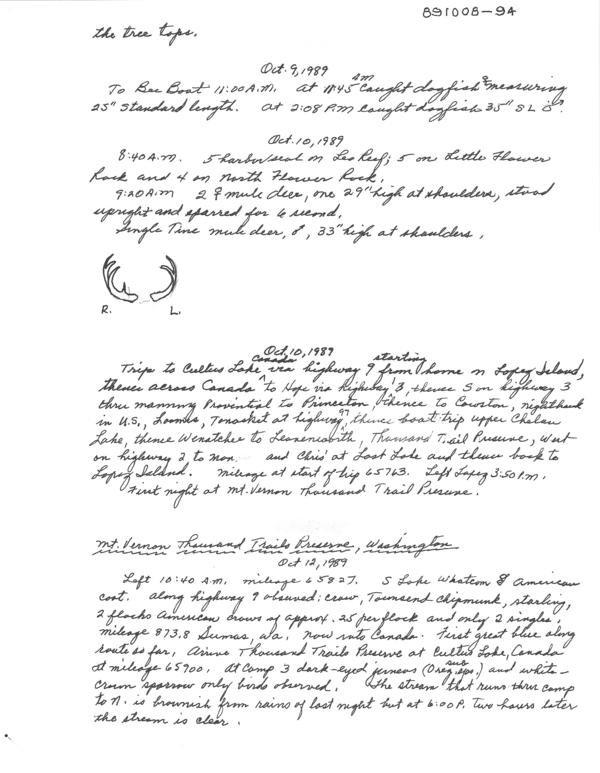 891008-94
the tree tops.
Oct. 9, 1989
To Bee Boat 11:00 A.M. at 11:45 AM caught dogfish ♀ measuring
25" standard length. at 2:08 P.M caught dogfish 35" S L ♂.
Oct. 10, 1989
8:40 A.M. 5 harbor seal on Leo Reef; 5 on Little Flower
Rock and 4 on North Flower Rock.
9:20 A.M 2 ♀ mule deer, one 29" high at shoulders, stood
upright and sparred for 6 second.
Single Tine mule deer, ♂, 33" high at shoulders.
R. L.
Oct, 10, 1989
Trip to Cultus Lake Canada via highway 9 from starting home on Lopez Island,
thence across Canada to Hope via highway 3, thence S on highway 3
thru manning Provential to Princeton, thence to Cowston, nighthawk
in U.S., Loomis, Tonasket at highway 97, thence boat trip upper Chelan
Lake, thence Wenatchee to Leavenworth, Thousand Trail Preserve, West
on highway 2 to Mon. and Chris' at Lost Lake and thence back to
Lopez Island. mileage at start of trip 65763. Left Lopez 3:50 P.m.
First night at Mt. Vernon Thousand Trail Preserve.
Mt. Vernon Thousand Trails Preserve, Washington
Oct 12, 1989
Left 10:40 A.M. mileage 65827. S Lake Whatcom 8 American
coot. along highway 9 observed: crow, Townsend Chipmunk, starling,
2 flocks American crows of approx. 25 per flock and only 2 singles.
mileage 873.8 Sumas, Wa. now into Canada. First great blue along
route so far, Arrive Thousand Trails Preserve at Cultus Lake, Canada
at mileage 65900. At Camp 3 dark-eyed juncos (Oreg. sub sps.) and white-
crown sparrow only birds observed. The stream that runs thru camp
to N. is brownish from rains of last night but at 6:00 P. Two hours later
the stream is clear.